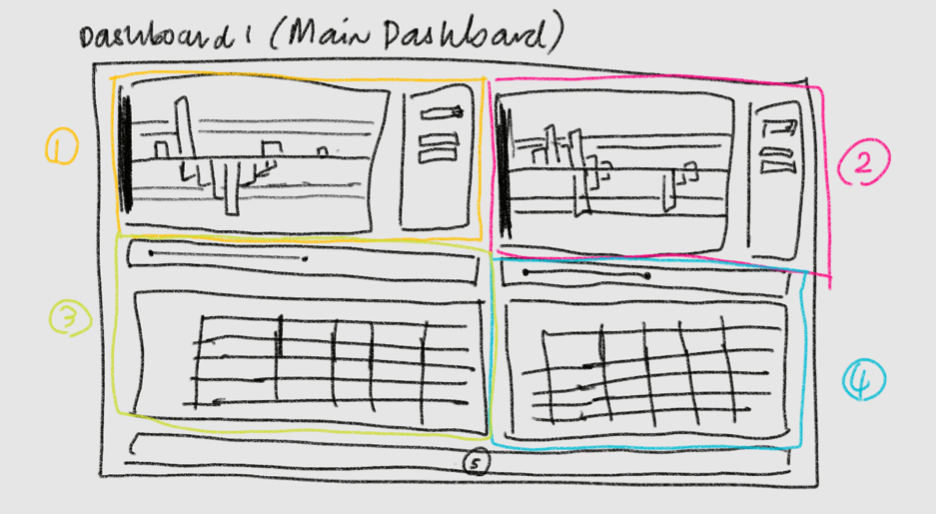 Dashboard 1 (Main Dashboard)
1
2
3
4
5